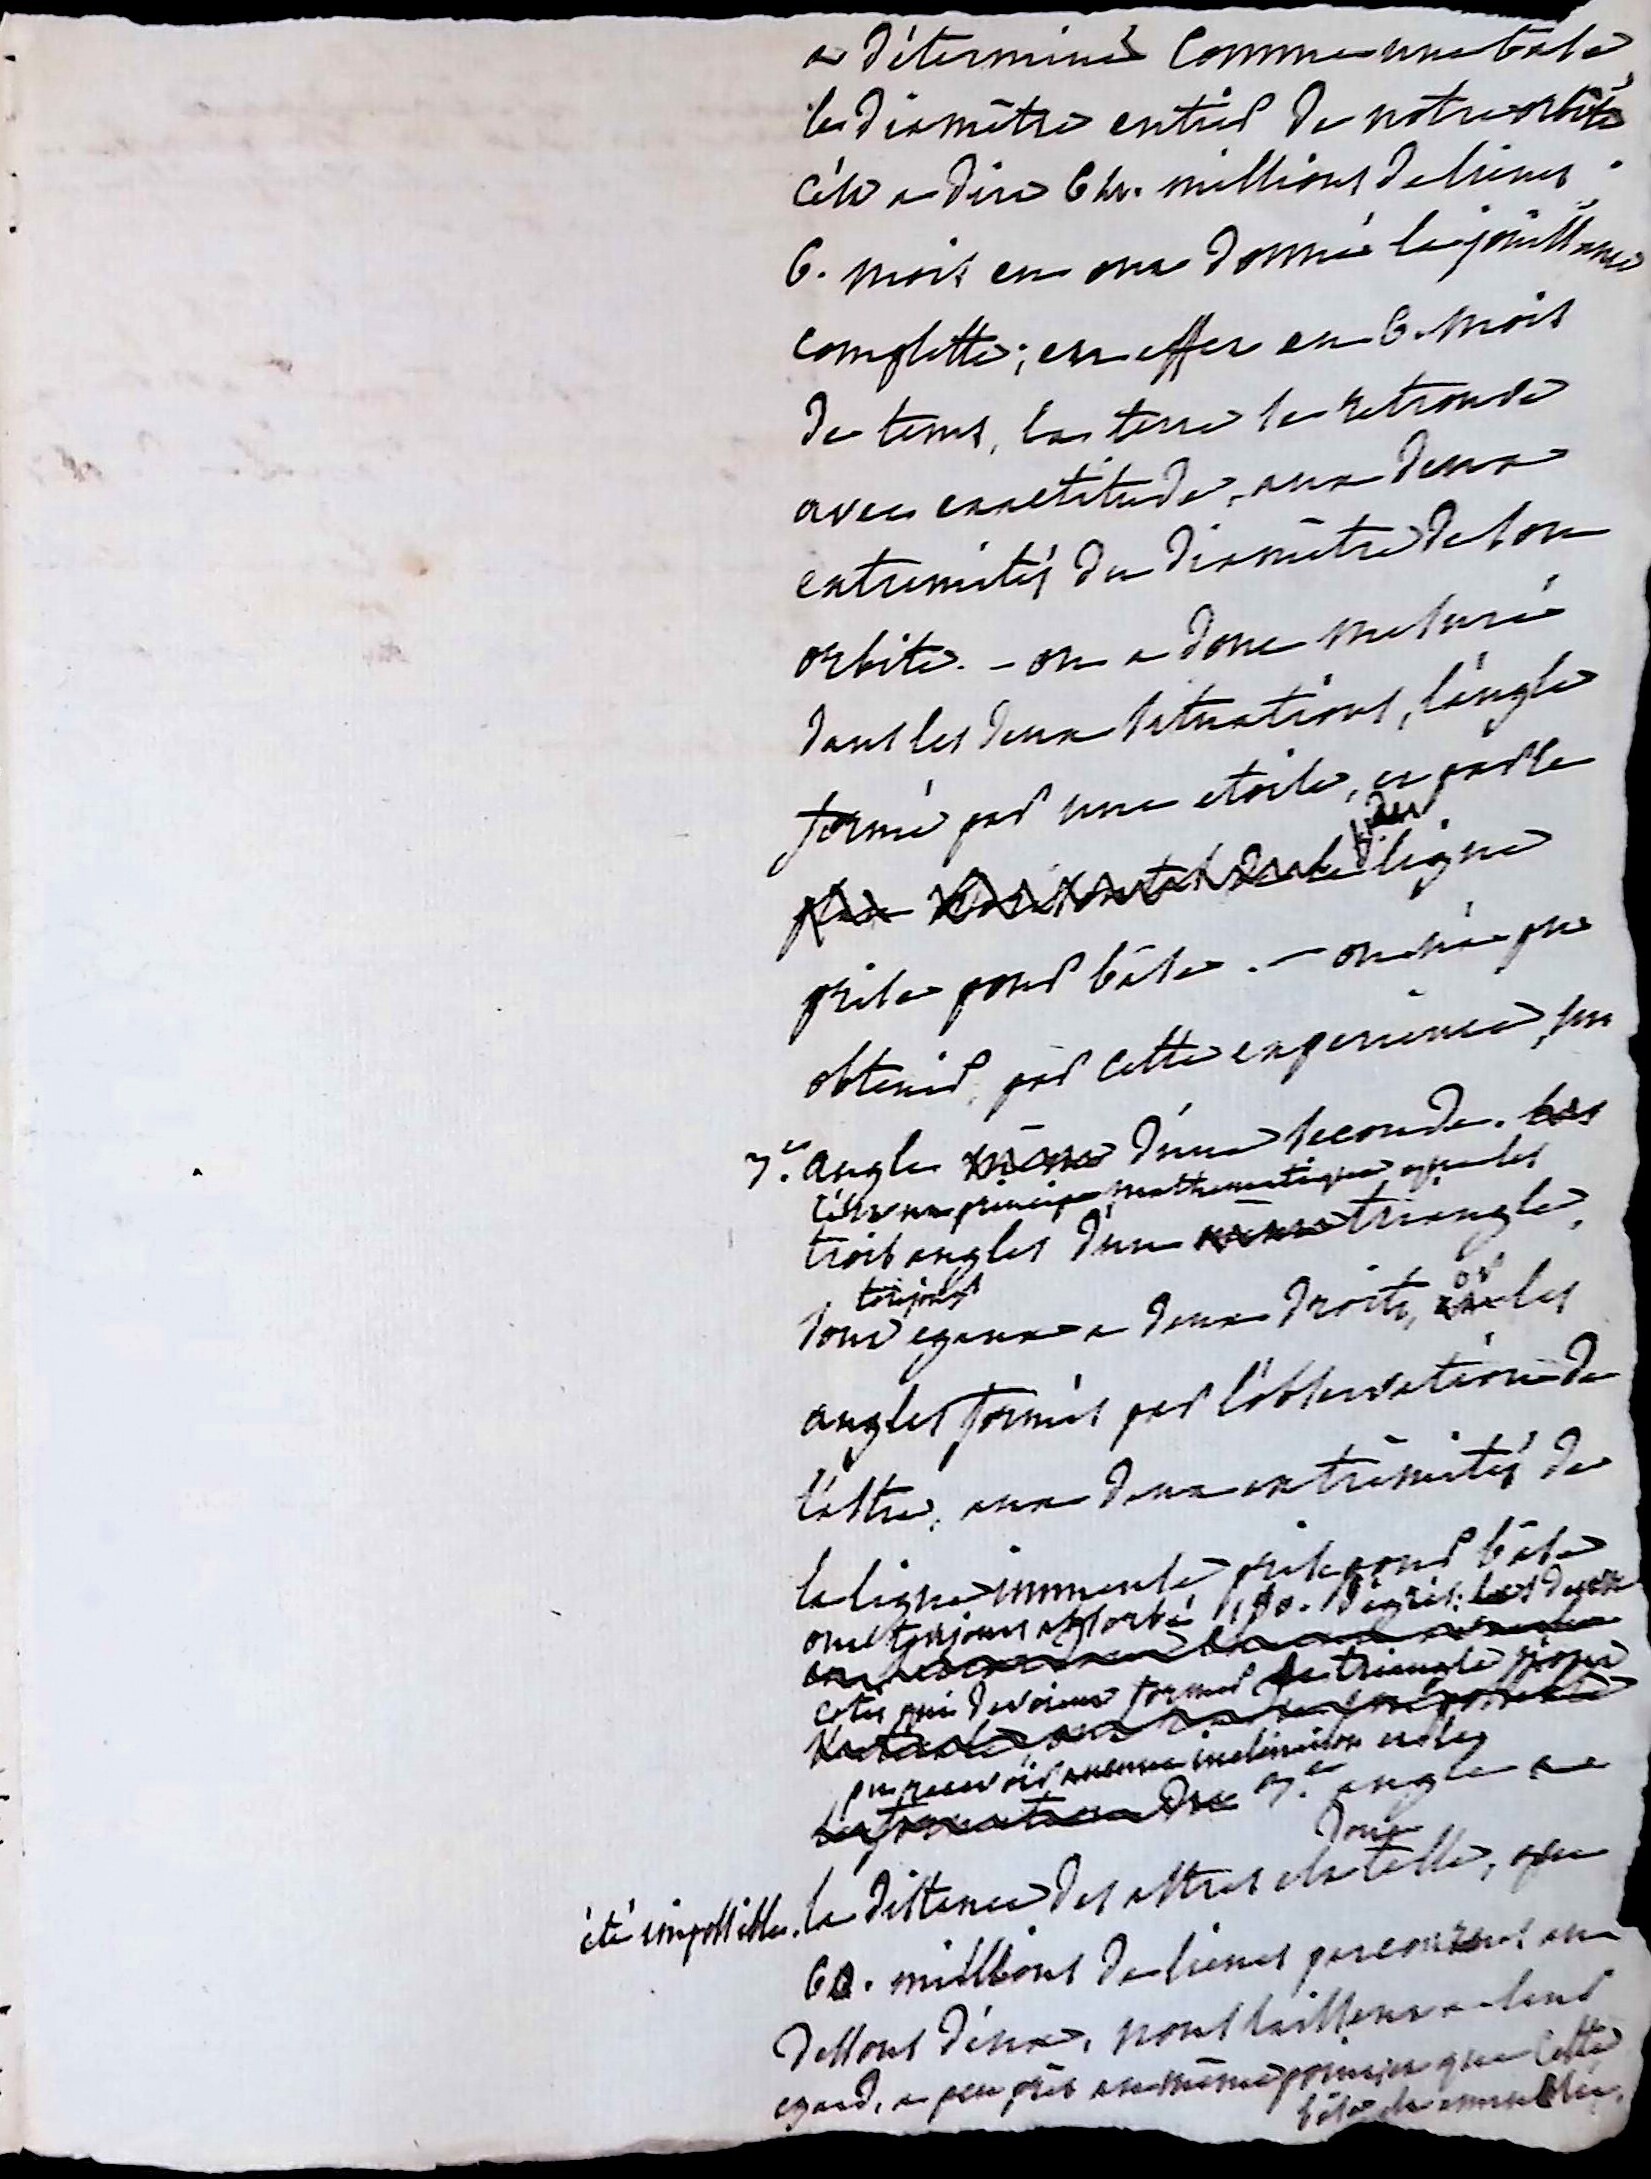 a déterminé comme une base
le diamètre entier de notre orbite
c'est a dire 6 millions de lieues.
6. mois en ont donné la jouissance
complette; en effet en 6. mois
de tems, la terre se retrouve
avec exactitude, aux deux
extremités du diamètre de son
orbite. - on a donc mesuré
dans les deux situations, l'angle
formé par une etoile, et par la
ligne
prise pour base. - on n'a pu
obtenir, par cette experience, un
3.e angle même d'une seconde. les
c'est un principe mathematique que les
trois angles d'un même triangle,
toujours
sont egaux a deux droits, or les
angles formés par l'observation de
l'astre, aux deux extrêmités de
la ligne immense prise pour base
ont toujours absorbé 180. dégrés; les deux
cotés qui devoient former le triangle n'ont
pu recevoir aucune inclinaison et le
3.e angle a
donc
été impossible. la distance des astres est telle, que
60. millions de lieues parcourues au
dessous d'eux, nous laissent a leur
egard, a peu près au même point que cette